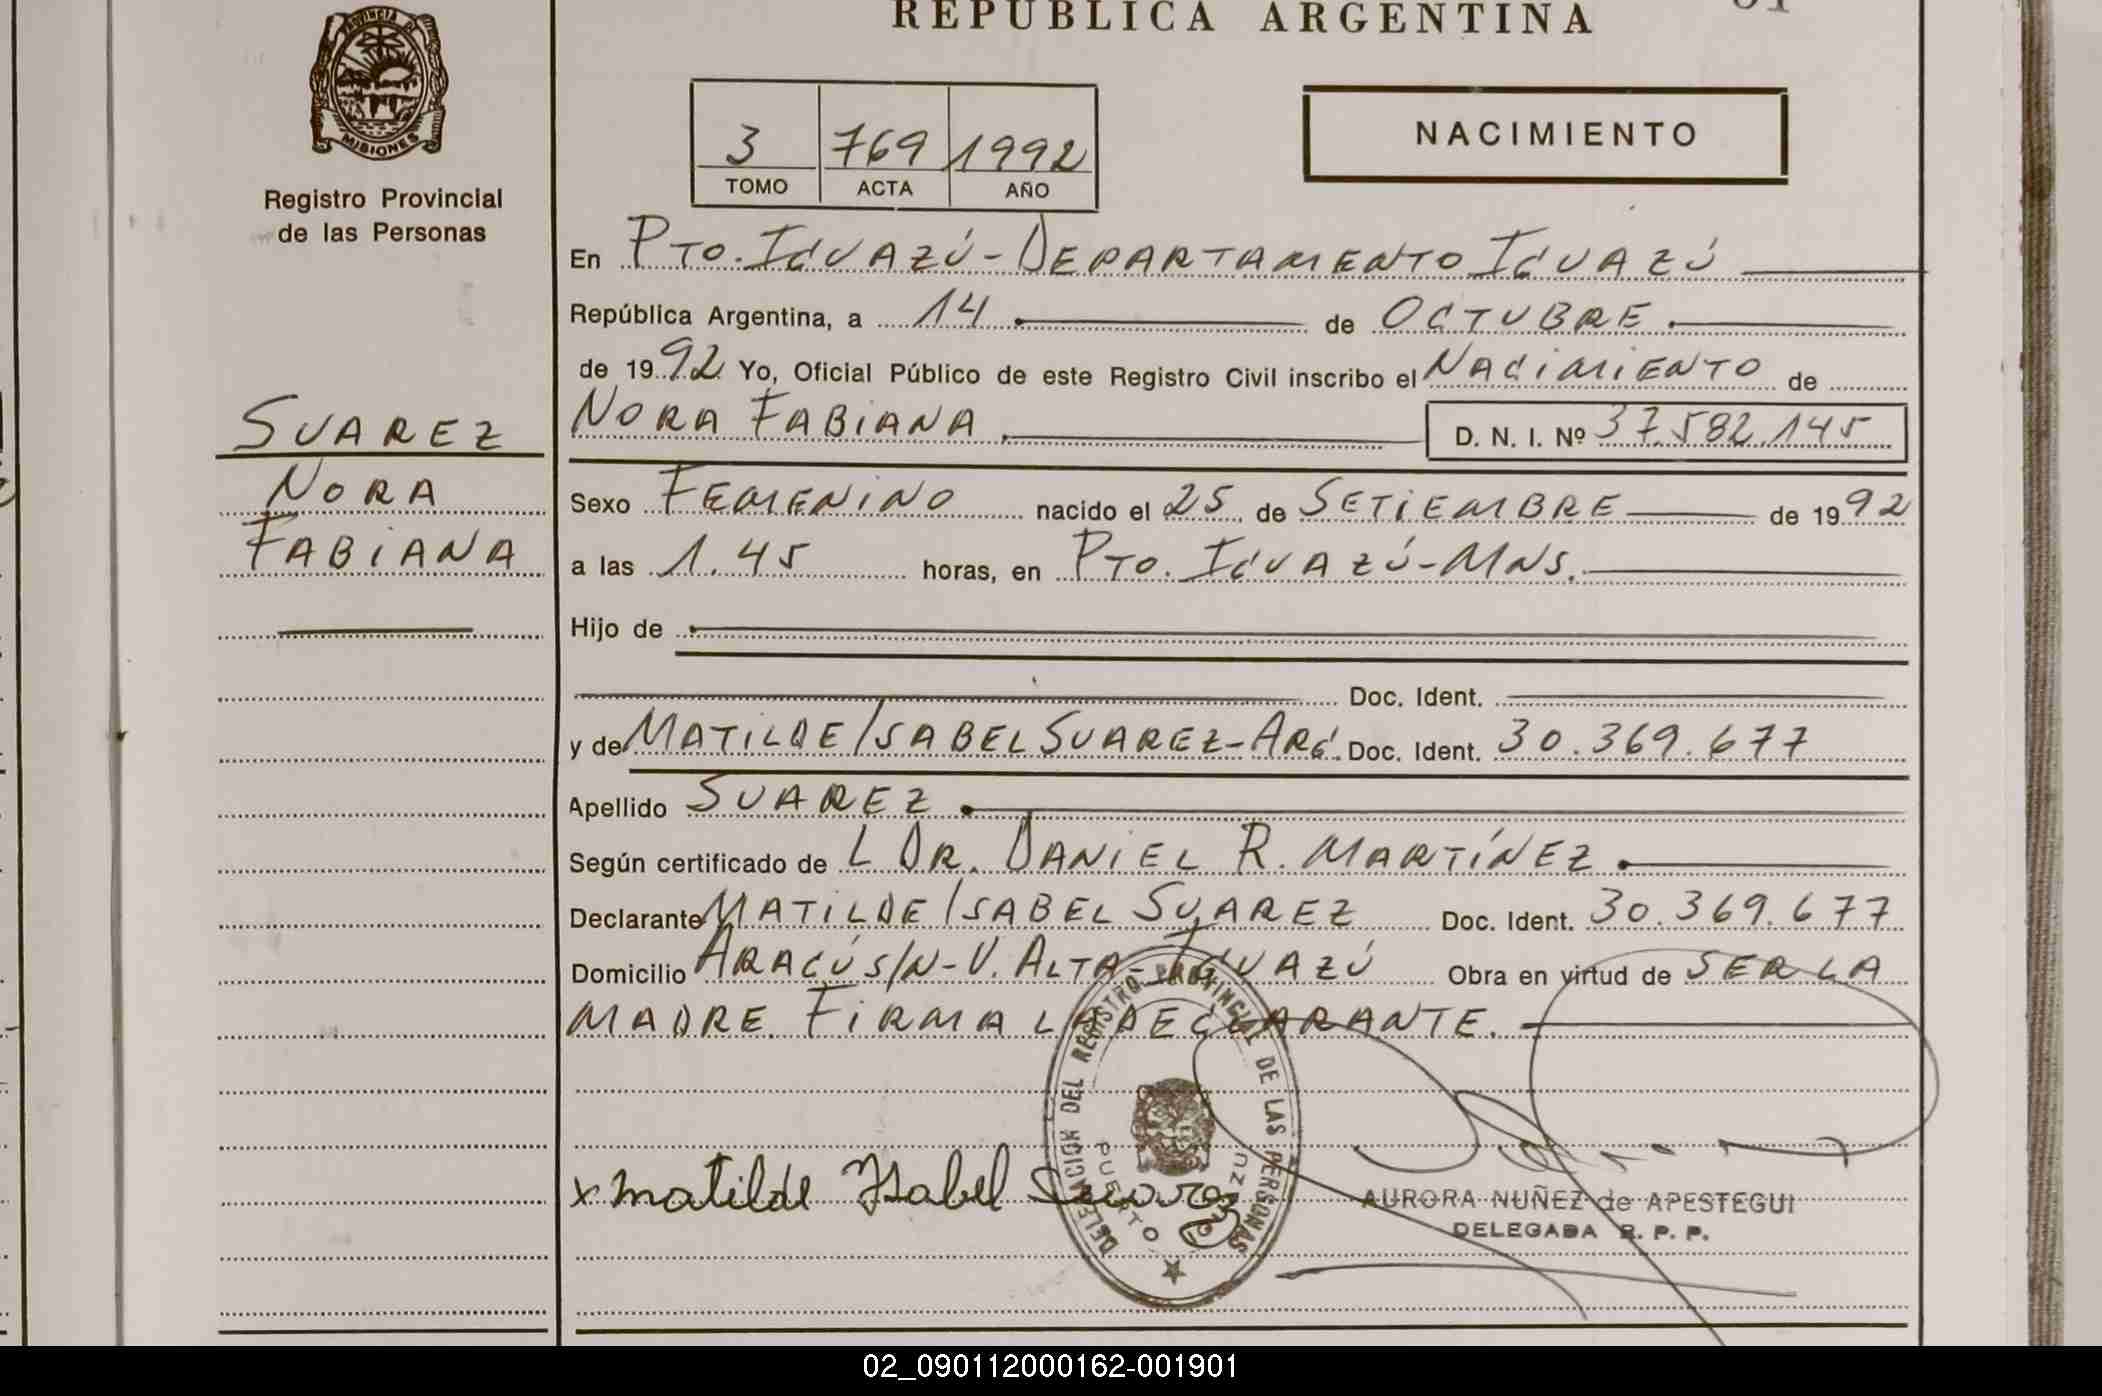 REPUBLICA ARGENTINA
PROVINCIA DE
MISIONES
Registro Provincial
de las Personas
3 769 1992
TOMO ACTA AÑO
NACIMIENTO
En PTO. IGUAZÚ - DEPARTAMENTO IGUAZÚ
República Argentina, a 14 de OCTUBRE
de 1992 Yo, Oficial Público de este Registro Civil inscribo el NACIMIENTO de
NORA FABIANA D. N. I. Nº 37.582.145
SUAREZ
NORA
FABIANA
Sexo FEMENINO nacido el 25 de SETIEMBRE de 1992
a las 1.45 horas, en PTO. IGUAZÚ - MNS.
Hijo de
Doc. Ident.
y de MATILDE ISABEL SUAREZ - ARG. Doc. Ident. 30.369.677
Apellido SUAREZ
Según certificado de L DR. DANIEL R. MARTÍNEZ
Declarante MATILDE ISABEL SUAREZ Doc. Ident. 30.369.677
Domicilio ARAGÚ S/N - V. ALTA - IGUAZÚ Obra en virtud de SER LA
MADRE. FIRMA LA DECLARANTE.
DELEGACION DEL REGISTRO PROVINCIAL DE LAS PERSONAS
PUERTO IGUAZU
x Matilde Ysabel Suarez
AURORA NUÑEZ de APESTEGUI
DELEGADA R. P. P.
02_090112000162-001901